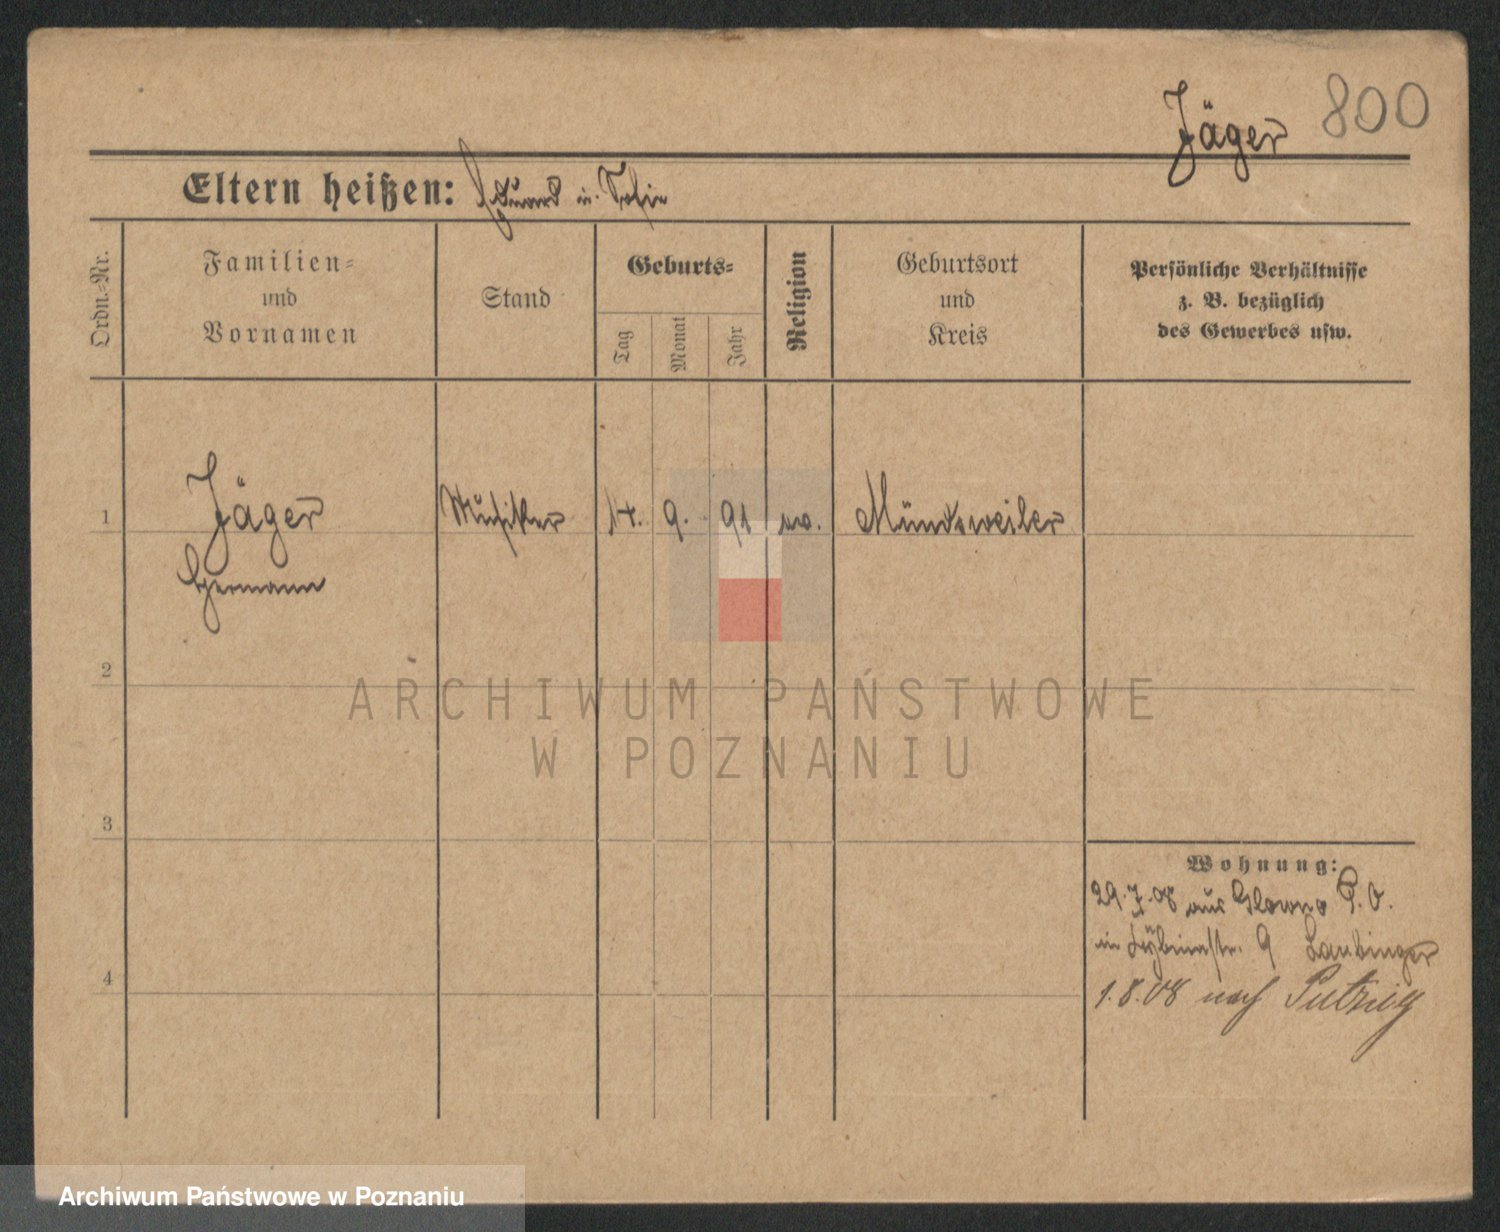 Jäger 800
Eltern heißen: Eduard u. Sofie
Ordn.-Nr.
Familien-
und
Vornamen
Stand
Geburts-
Tag
Monat
Jahr
Religion
Geburtsort
und
Kreis
Persönliche Verhältnisse
z. B. bezüglich
des Gewerbes usw.
1 Jäger Musiker 14. 9. 91 ev. Mündsweiler
Hermann
2
3
4
ARCHIWUM PAŃSTWOWE
W POZNANIU
Wohnung:
29.7.08 aus Glowno P. O.
in 9 Laubinger
1.8.08 nach Putzig
Archiwum Państwowe w Poznaniu